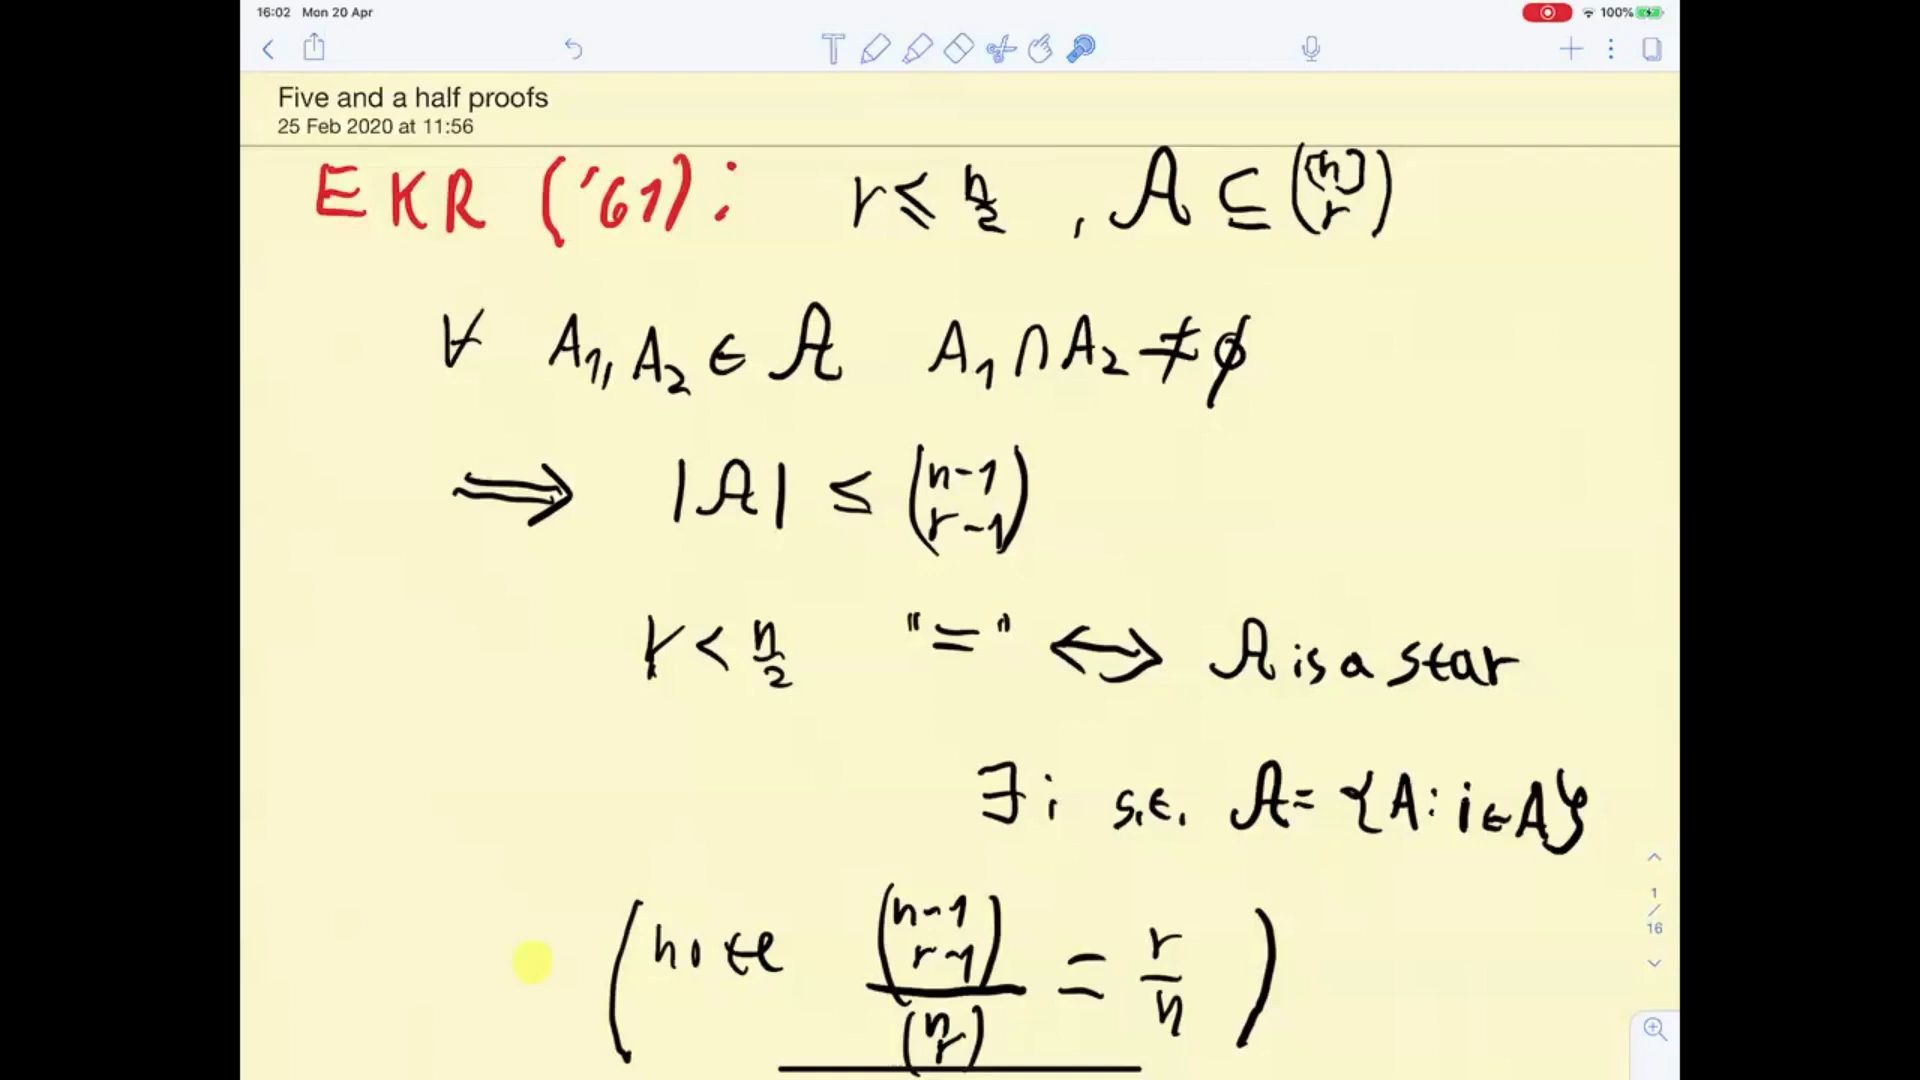 16:02 Mon 20 Apr 100%
T
Five and a half proofs
25 Feb 2020 at 11:56
EKR ('61): r ≤ n/2 , 𝒜 ⊆ ([n] r)
∀ A₁, A₂ ∈ 𝒜 A₁ ∩ A₂ ≠ ∅
⟹ |𝒜| ≤ (n-1 r-1)
r < n/2 "=" ⟷ 𝒜 is a star
∃ i s.t. 𝒜 = {A: i ∈ A}
(note (n-1 r-1) / (n r) = r/n)
1
/
16